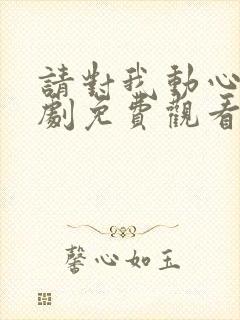 請對我動心
劇免費觀看
馨心如玉